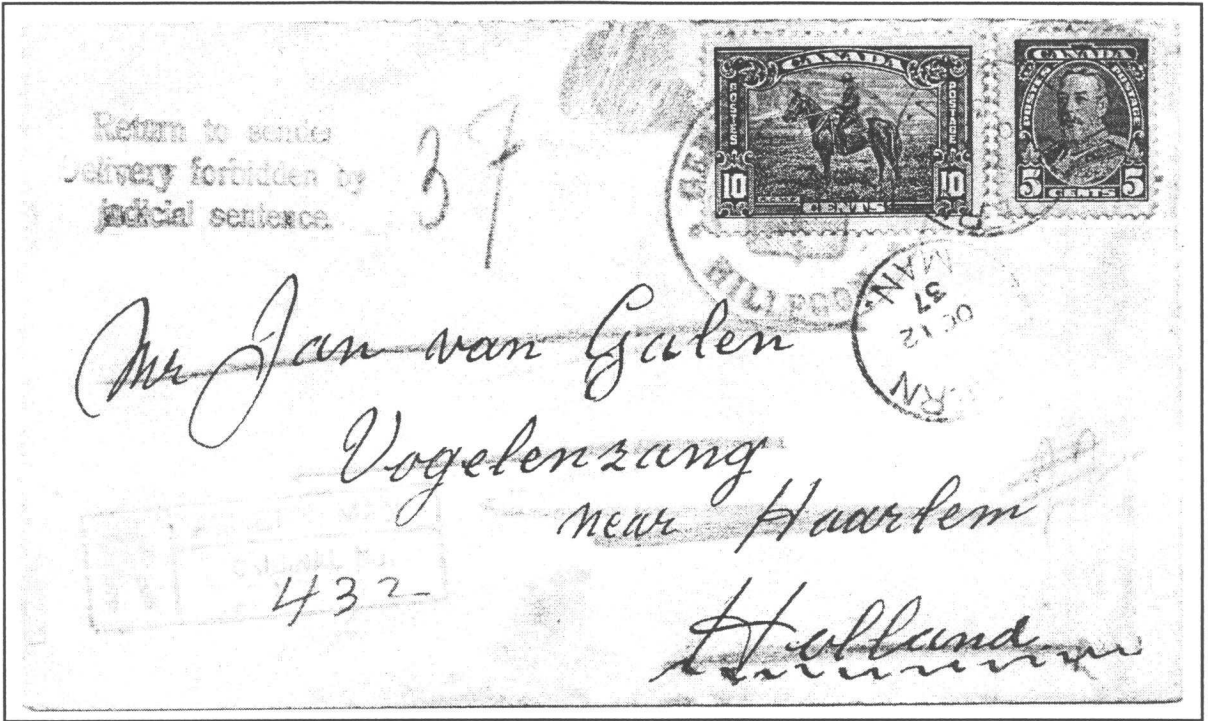 Return to sender
Delivery forbidden by
judicial sentence.
37
CANADA
POSTES POSTAGE
10 10
CENTS
CANADA
POSTES POSTAGE
5 CENTS 5
MAN.
37
OC 12
Mr Jan van Galen
Vogelenzang
near Haarlem
432
Holland